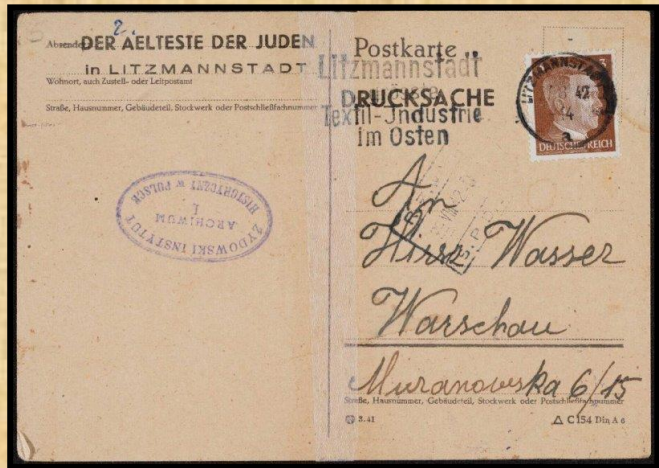 2.
Absender: DER AELTESTE DER JUDEN
in LITZMANNSTADT
Wohnort, auch Zustell- oder Leitpostamt
Straße, Hausnummer, Gebäudeteil, Stockwerk oder Postschließfachnummer
ŻYDOWSKI INSTYTUT
HISTORYCZNY W POLSCE
ARCHIWUM
Postkarte
Litzmannstadt
DRUCKSACHE
Textil-Jndustrie
im Osten
LITZMANNSTADT
42
a
DEUTSCHES REICH
An
Hirsz Wasser
Warschau
Muranowska 6/15
Straße, Hausnummer, Gebäudeteil, Stockwerk oder Postschließfachnummer
3.41
C154 Din A 6